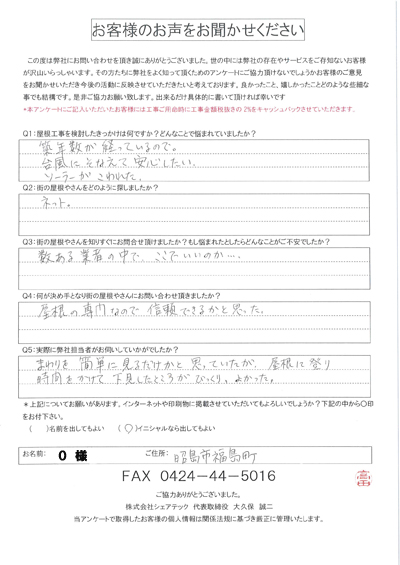 お客様のお声をお聞かせください
この度は弊社にお問い合わせを頂き誠にありがとうございました。世の中には弊社の存在やサービスをご存知ないお客様
が沢山いらっしゃいます。その方たちに弊社をよく知って頂くためのアンケートにご協力頂けないでしょうかお客様のご意見
をお聞かせいただき今後の活動に反映させていただきたいと考えております。良かったこと、嬉しかったことどのような些細な
事でも結構です。是非ご協力お願い致します。出来るだけ具体的に書いて頂ければ幸いです
*本アンケートにご記入いただいたお客様には工事ご用命時に工事金額税抜きの2%をキャッシュバックさせていただきます。
Q1:屋根工事を検討したきっかけは何ですか?どんなことで悩まれていましたか?
築年数が経っているので。
台風にそなえて安心したい。
ソーラーがこわれた。
Q2:街の屋根やさんをどのように探しましたか?
ネット。
Q3:街の屋根やさんを知りすぐにお問合せ頂けましたか?もし悩まれたとしたらどんなことがご不安でしたか?
数ある業者の中で、ここでいいのか…、
Q4:何が決め手となり街の屋根やさんにお問い合わせ頂きましたか?
屋根の専門なので信頼できるかと思った。
Q5:実際に弊社担当者がお伺いしていかがでしたか?
まわりを簡単に見るだけかと思っていたが、屋根に登り
時間をかけて下見したところがびっくり、よかった。
*上記についてお願いがあります。インターネットや印刷物に掲載させていただいてもよろしいでしょうか?下記の中から〇印
をお付下さい。
( )名前を出してもよい (〇)イニシャルなら出してもよい
お名前: O 様 ご住所: 昭島市福島町
FAX 0424-44-5016
ご協力ありがとうございました。
株式会社シェアテック 代表取締役 大久保 誠二
当アンケートで取得したお客様の個人情報は関係法規に基づき厳正に管理いたします。